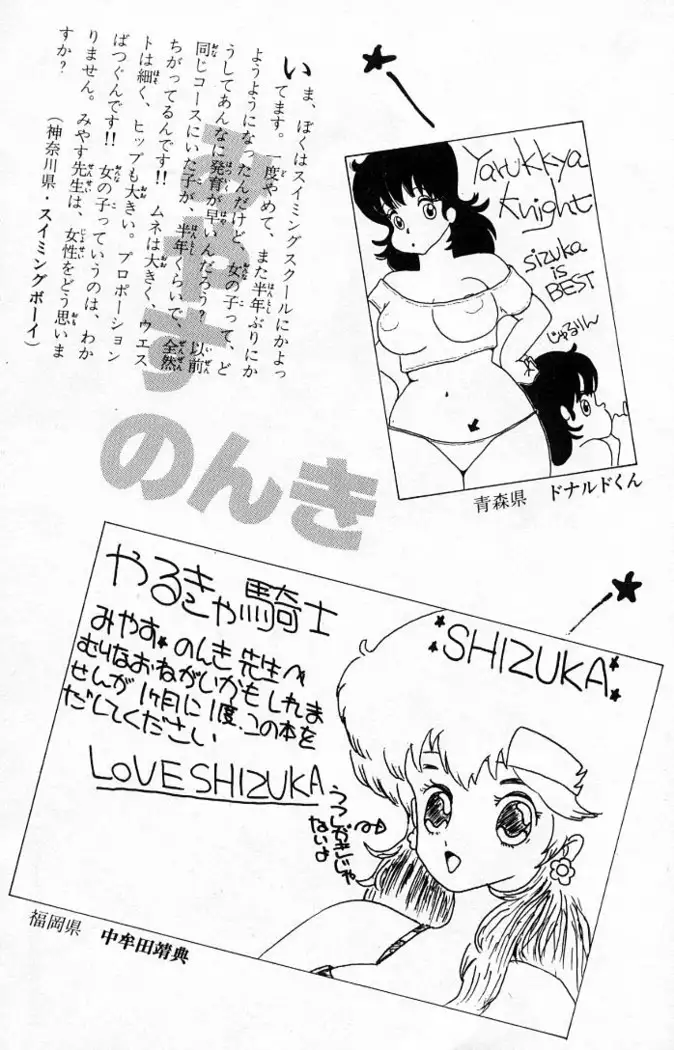 いま、ぼくはスイミングスクールにかよっ
てます。一度やめて、また半年ぶりにか
ようようになったんだけど、女の子って、ど
うしてあんなに発育が早いんだろう？以前
同じコースにいた子が、半年くらいで、全然
ちがってるんです!!ムネは大きく、ウエス
トは細く、ヒップも大きい。プロポーション
ばつぐんです!!女の子っていうのは、わか
りません。みやす先生は、女性をどう思いま
すか？
（神奈川県・スイミングボーイ）
みやす
のんき
Yarukkya
Knight
sizuka
is
BEST
じゃるりん
青森県 ドナルドくん
やるきゃ騎士
みやす・のんき先生へ
むりなおねがいかもしれま
せんが1ヶ月に1度、この本を
だしてください
LOVE SHIZUKA
SHIZUKA
うつしがきじゃ
ないよ
福岡県 中牟田靖典